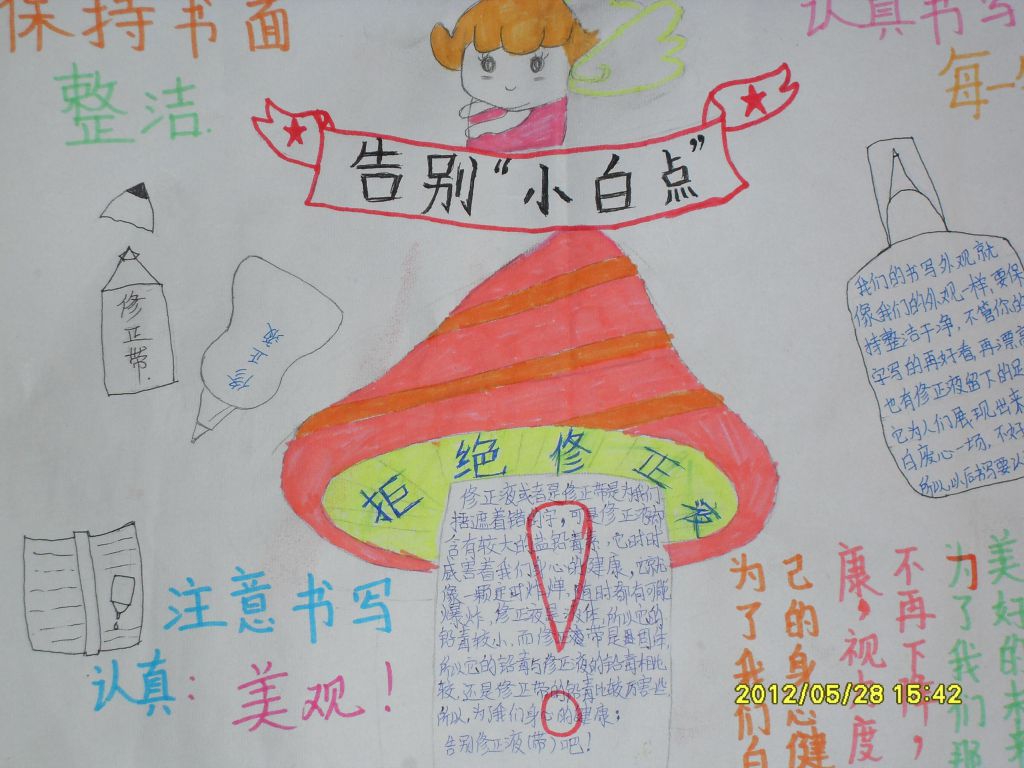 保持书面
整洁.
认真书写
每一
告别“小白点”
修正带.
修正液
拒绝修正液
我们的书写外观就
像我们的外观一样,要保
持整洁干净,不管你的
字写的再好看,再漂亮
也有修正液留下的足
它为人们展现出来
白废心一场,不好
所以以后书写要认
修正液或者是修正带是为我们
掩遮着错的字,可是修正液
含有较大的铅毒,它时时
威害着我们身心的健康,它就
像一颗定时炸弹,随时都有可能
爆炸,修正液是液体,所以它的
铅毒较小,而修正液带是是固体
所以它的铅毒与修正液的铅毒相比
较,还是修正带的铅毒比较厉害些,
所以,为我们身心的健康;
告别修正液(带)吧!
注意书写
认真:美观!
为了我们自
己的身心健
康,视力度
不再下降,
为了我们那
美好的未来
2012/05/28 15:42